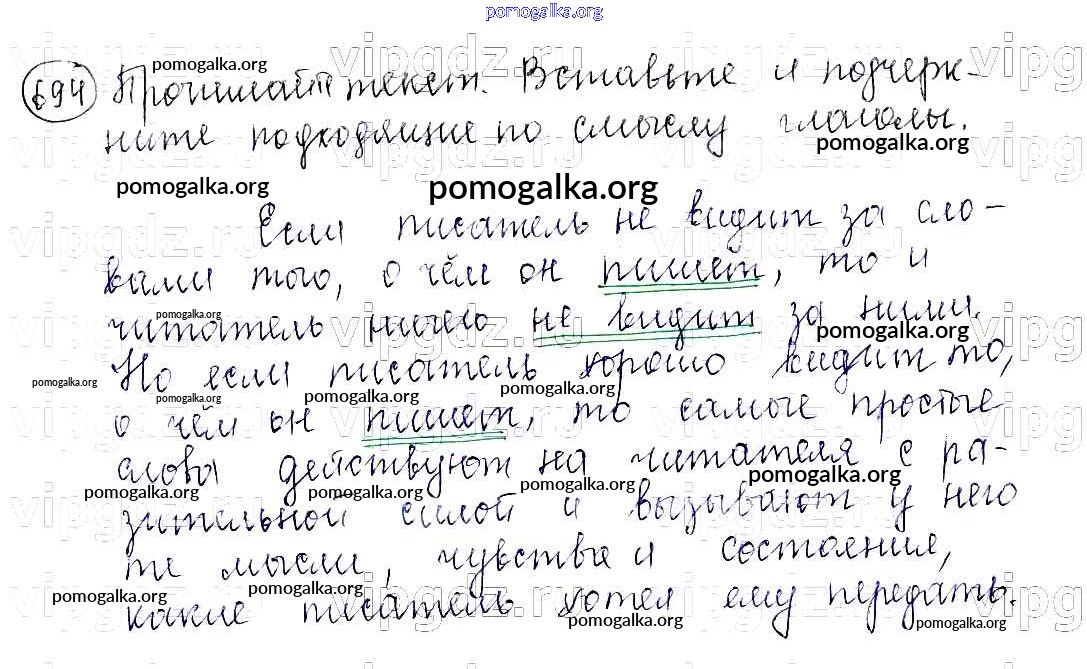 pomogalka.org
694 Прочитайте текст. Вставьте и подчерк-
ните подходящие по смыслу глаголы.
pomogalka.org
Если писатель не видит за сло-
вами того, о чём он пишет, то и
читатель ничего не видит за ними.
Но если писатель хорошо видит то,
о чём он пишет, то самые простые
слова действуют на читателя с ра-
зительной силой и вызывают у него
те мысли, чувства и состояния,
какие писатель хотел ему передать.